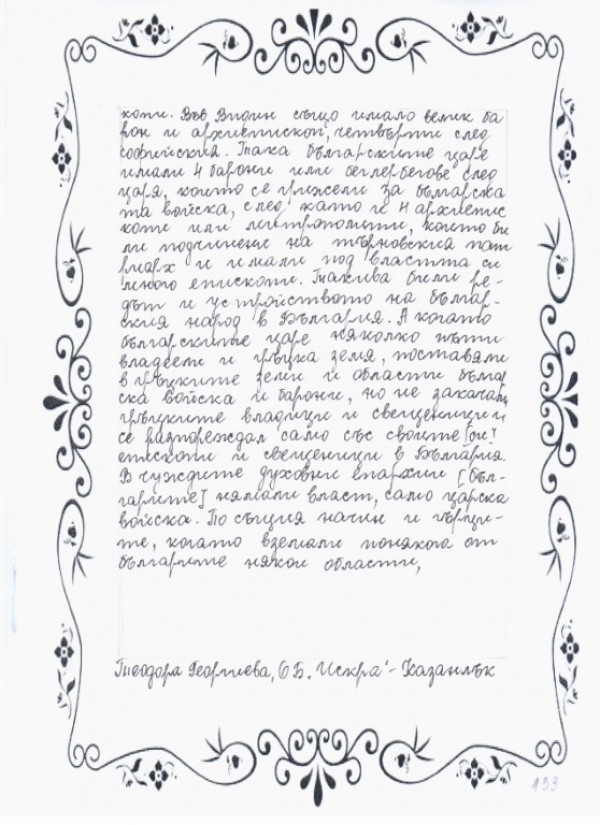 копи. Във Видин също имало велик ба
рон и архиепископ, четвърти след
софийския. Така българските царе
имали 4 барони или беглербегове след
царя, които се грижели за българска
та войска, след като и 4 архиепис
копи или митрополити, които би
ли подчинени на търновския пат
риарх и имали под властта си
много епископи. Такива били ре-
дът и устройството на българ-
ския народ в България. А когато
българските царе няколко пъти
владеели и гръцка земя, поставяли
в гръцките земи и области бълга
ска войска и барони, но не закачали
гръцките владици и свещеници и
се разпореждал само със своите [си]
епископи и свещеници в България.
В чуждите духовни епархии [бъл-
гарите] нямали власт, само царска
войска. По същия начин и гърци-
те, когато вземали понякога от
българите някои области,
Теодора Георгиева, ОБ. "Искра" - Казанлък
133